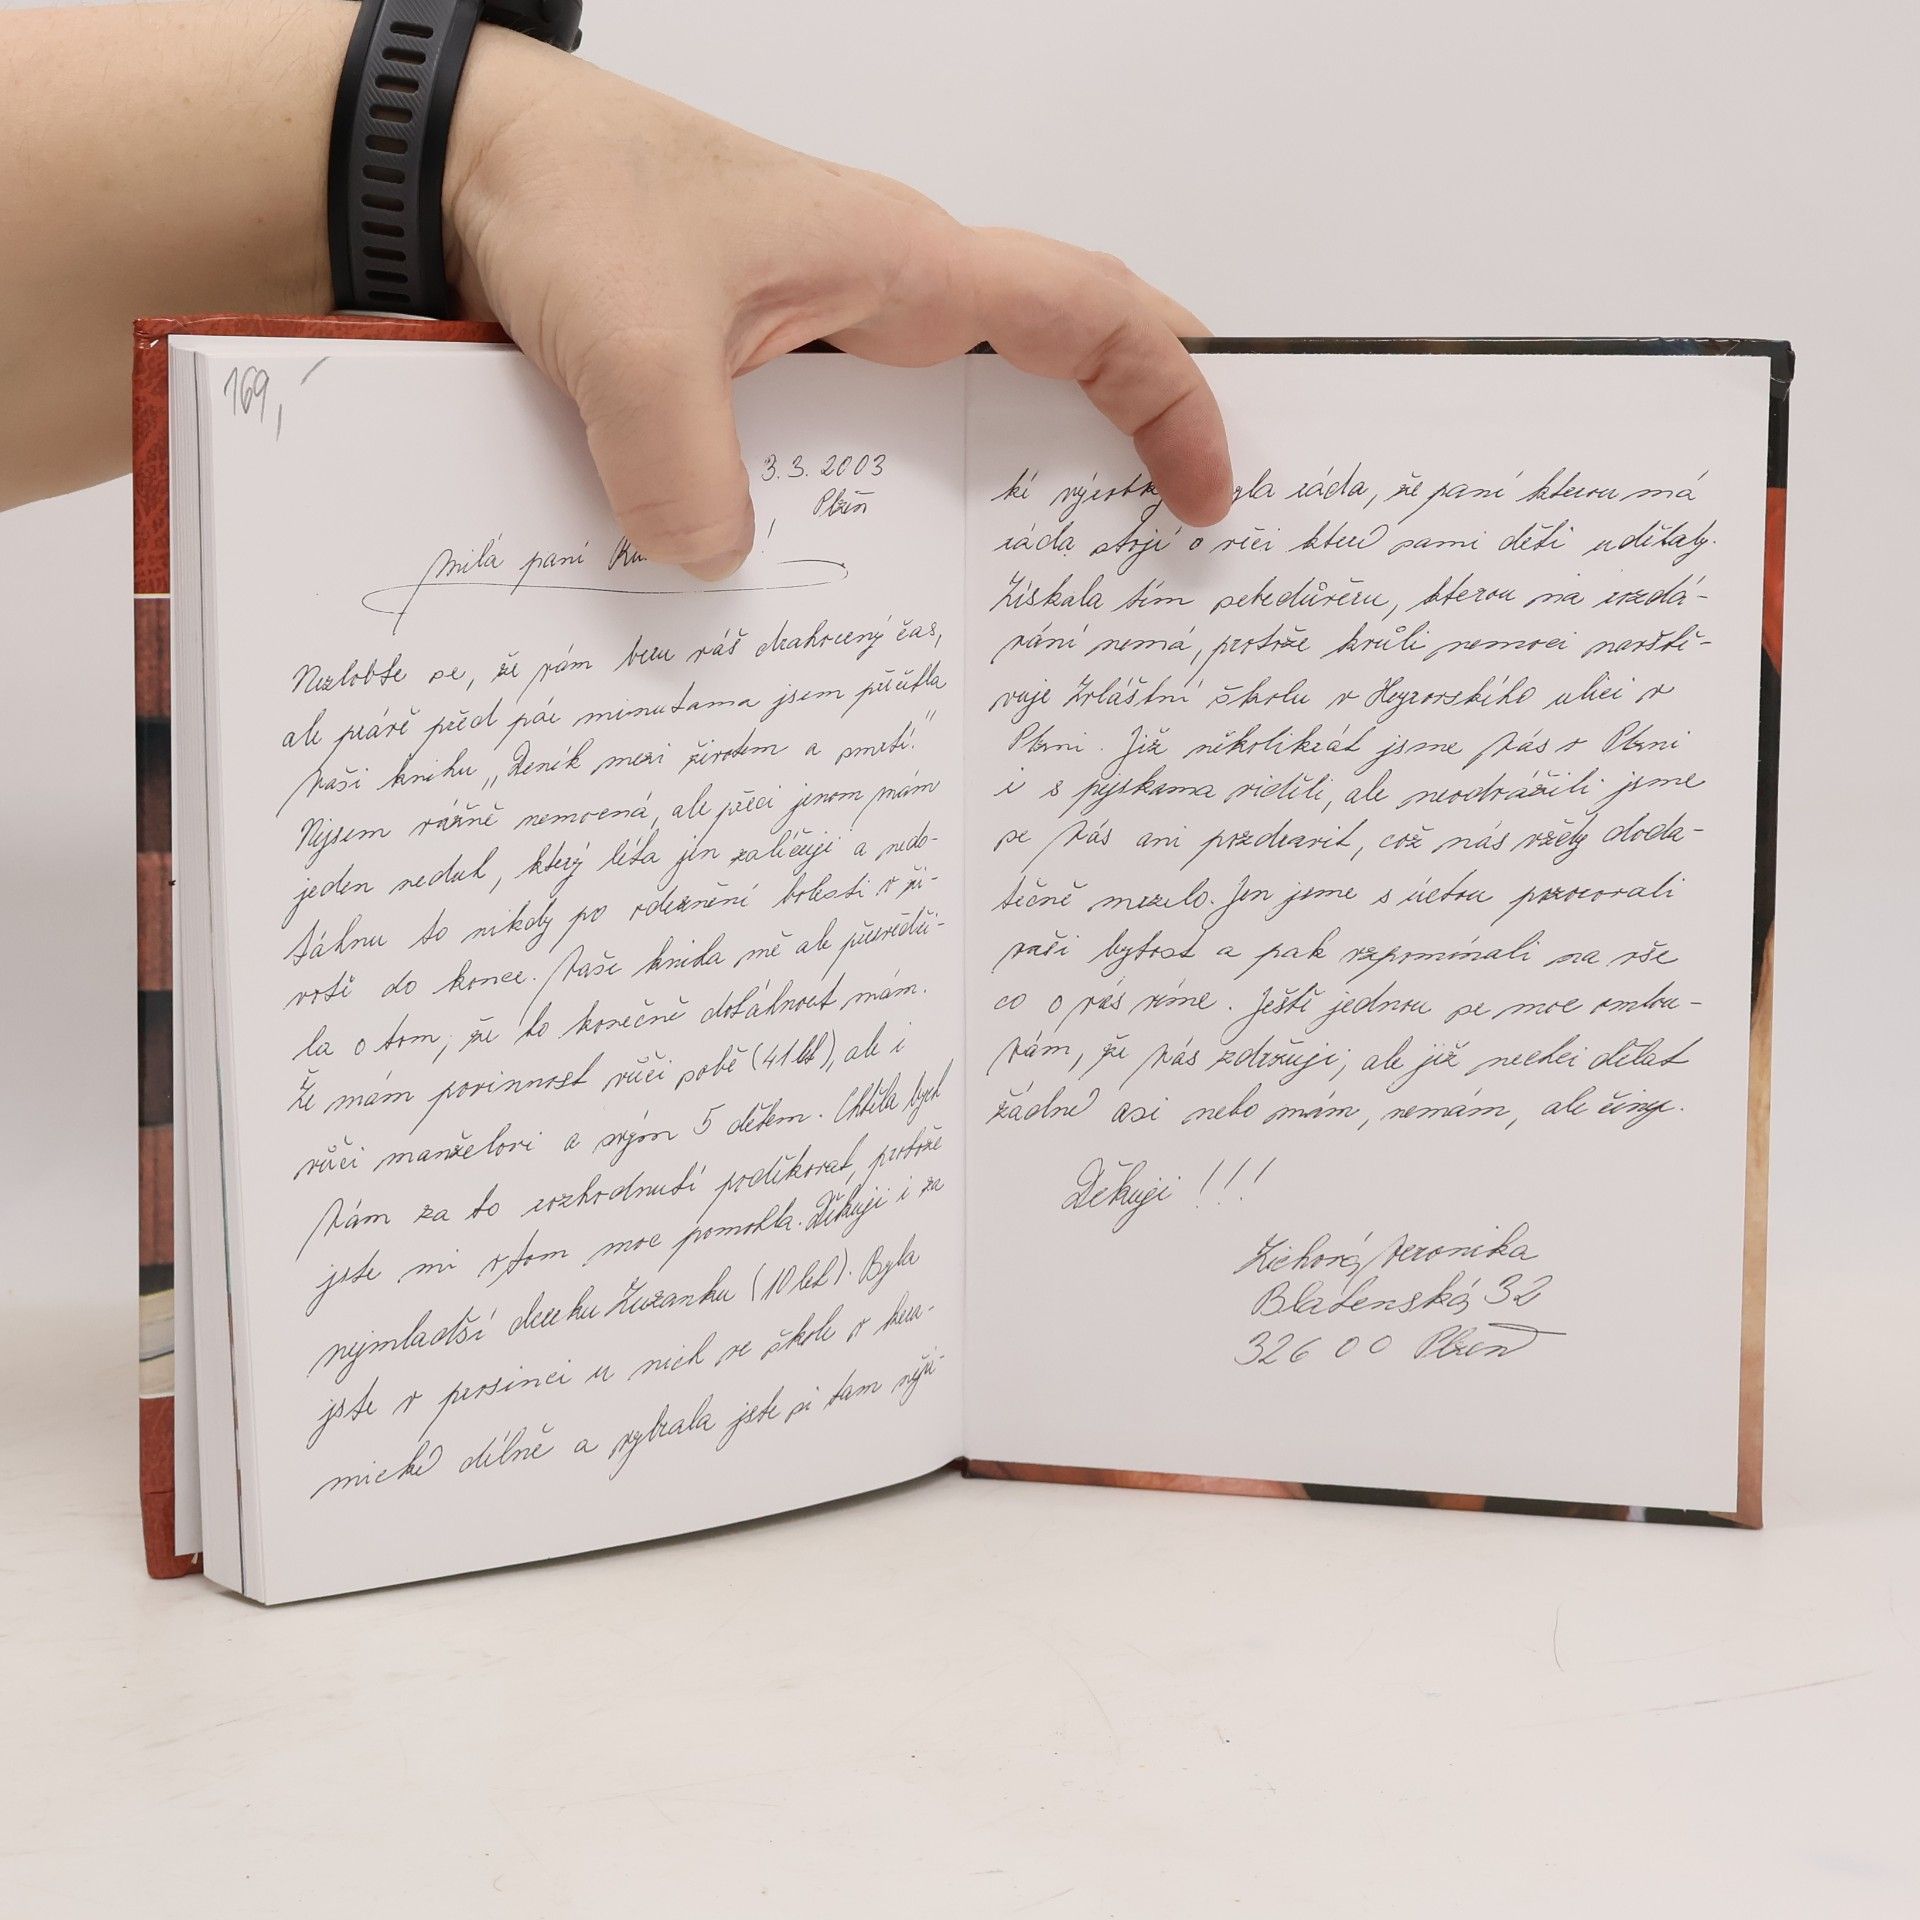 169,-
3.3. 2003
Plzeň
Milá paní !
Nezlobte se, že vám beru váš drahocený čas,
ale právě před pár minutama jsem přečetla
Vaši knihu „Deník mezi životem a smrtí."
Nejsem vážně nemocná, ale přeci jenom mám
jeden neduh, který léta jen zaléčuji a nedo-
táhnu to nikdy po odeznění bolesti v ži-
votě do konce. Vaše kniha mě ale přesvědči-
la o tom, že to konečně dotáhnout mám.
Že mám povinnost vůči sobě (41 let), ale i
vůči manželovi a svým 5 dětem. Chtěla bych
Vám za to rozhodnutí poděkovat, protože
jste mi v tom moc pomohla. Děkuji i za
nejmladší dcerku Zuzanku (10 let). Byla
jste v prosinci u nich ve škole v kera-
mické dílně a vybrala jste si tam něja-
ké ráda, že paní kterou má
ráda stojí o věci které sami děti udělaly.
Získala tím sebedůvěru, kterou na vzdá-
vání nemá, protože kvůli nemoci navště-
vuje Zvláštní školu v Heyrovského ulici v
Plzni. Již několikrát jsme Vás v Plzni
i s pejskama viděli, ale neodvážili jsme
se Vás ani pozdravit, což nás vždy doda-
tečně mrzelo. Jen jsme s úctou pozorovali
vaši bytost a pak vzpomínali na vše
co o vás víme. Ještě jednou se moc omlou-
vám, že Vás zdržuji, ale již nechci dělat
žádné asi nebo mám, nemám, ale činy.
Děkuji !!!
Zichová Veronika
Blatenská 32
326 00 Plzeň